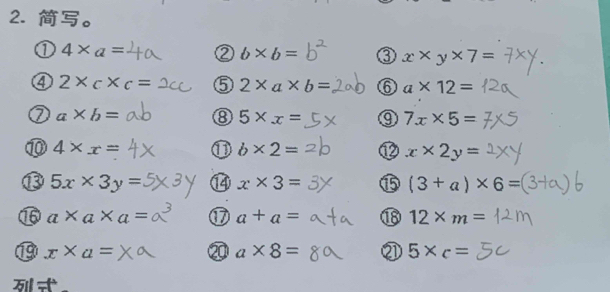 2. 简写。
① 4×a=4a ② b×b=b² ③ x×y×7=7xy.
④ 2×c×c=2cc ⑤ 2×a×b=2ab ⑥ a×12=12a
⑦ a×b=ab ⑧ 5×x=5x ⑨ 7x×5=7x5
⑩ 4×x=4x ⑪ b×2=2b ⑫ x×2y=2xy
⑬ 5x×3y=5x3y ⑭ x×3=3x ⑮ (3+a)×6=(3+a)6
⑯ a×a×a=a³ ⑰ a+a=a+a ⑱ 12×m=12m
⑲ x×a=xa ⑳ a×8=8a ㉑ 5×c=5c
列式。